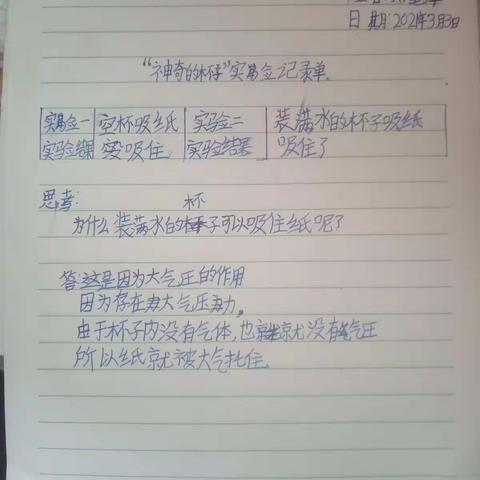 日期:2021年3月3日
“神奇的杯子”实验记录单.
实验一 空杯吸纸 实验二 装满水的杯子吸纸
实验结果 没吸住 实验结果 吸住了
思考:
杯
为什么装满水的子可以吸住纸呢?
答:这是因为大气压的作用
因为存在大气压力,
由于杯子内没有气体,也就没有气压
所以纸就被大气扎住.